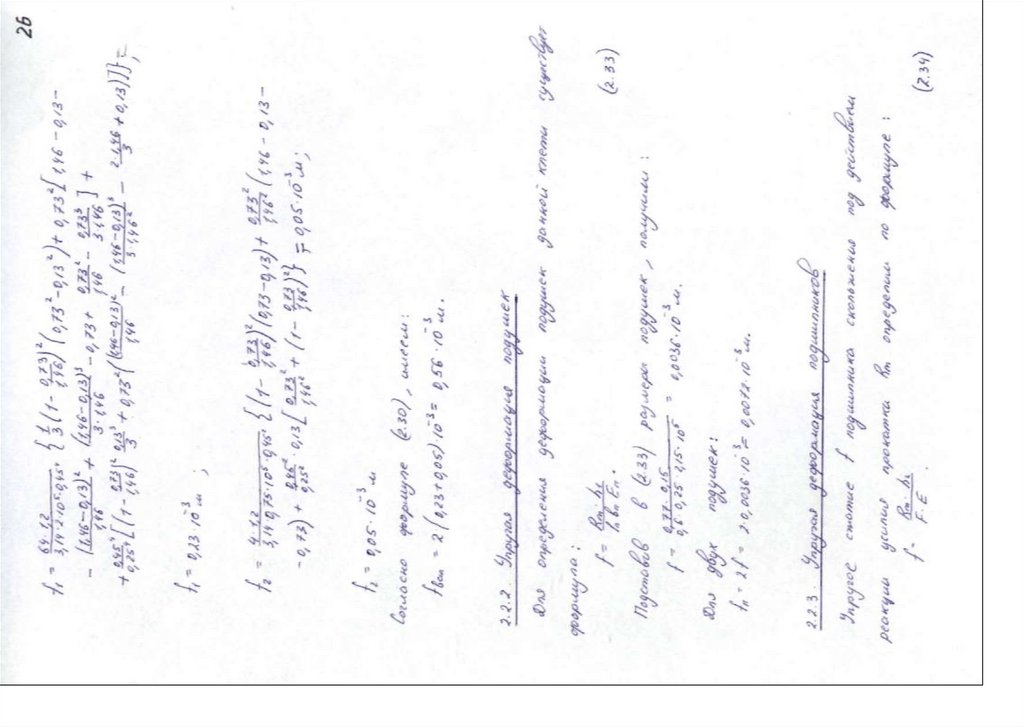 26
f₁ = 64·1,2 / 3,14·2·10⁵·0,45⁴ { 1/3 (1 − 0,73/1,46)² (0,73² − 0,13²) + 0,73² [1,46 − 0,13 −
− (1,46−0,13)²/1,46 + (1,46−0,13)³/3·1,46 − 0,73 + 0,73²/1,46 − 0,73³/3·1,46² ] +
+ 0,45⁴/0,25⁴ [(1 − 0,73/1,46)² 0,13³/3 + 0,73² ((1,46−0,13)²/1,46 − (1,46−0,13)³/3·1,46² − 2·1,46/3 + 0,13)]} =;
f₁ = 0,23·10⁻³ м ;
f₂ = 4·1,2 / 3,14·0,75·10⁵·0,45² {(1 − 0,73/1,46)² (0,73−0,13) + 0,73²/1,46² (1,46 − 0,13 −
− 0,73) + 0,45²/0,25² · 0,13 [0,73²/1,46² + (1 − 0,73/1,46)²]} = 0,05·10⁻³ м;
f₂ = 0,05·10⁻³ м
Согласно формуле (2.30), имеем:
fвал = 2 (0,23+0,05)·10⁻³ = 0,56·10⁻³ м.
2.2.2 Упругая деформация подушек
Для определения деформации подушек данной клети существует
формула:
f = Rm·h₁ / l₁ Bп Eп . (2.33)
Подставов в (2.33) размеры подушек, получим:
f = 0,77·0,15 / 0,6·0,25·2,15·10⁵ = 0,0036·10⁻³ м.
Для двух подушек:
fп = 2f = 2·0,0036·10⁻³ = 0,0072·10⁻³ м.
2.2.3 Упругая деформация подшипников
Упругое сжатие f подшипника скольжения под действием
реакции усилия прокатки Rm определим по формуле:
f = Rm·h₂ / F·E . (2.34)